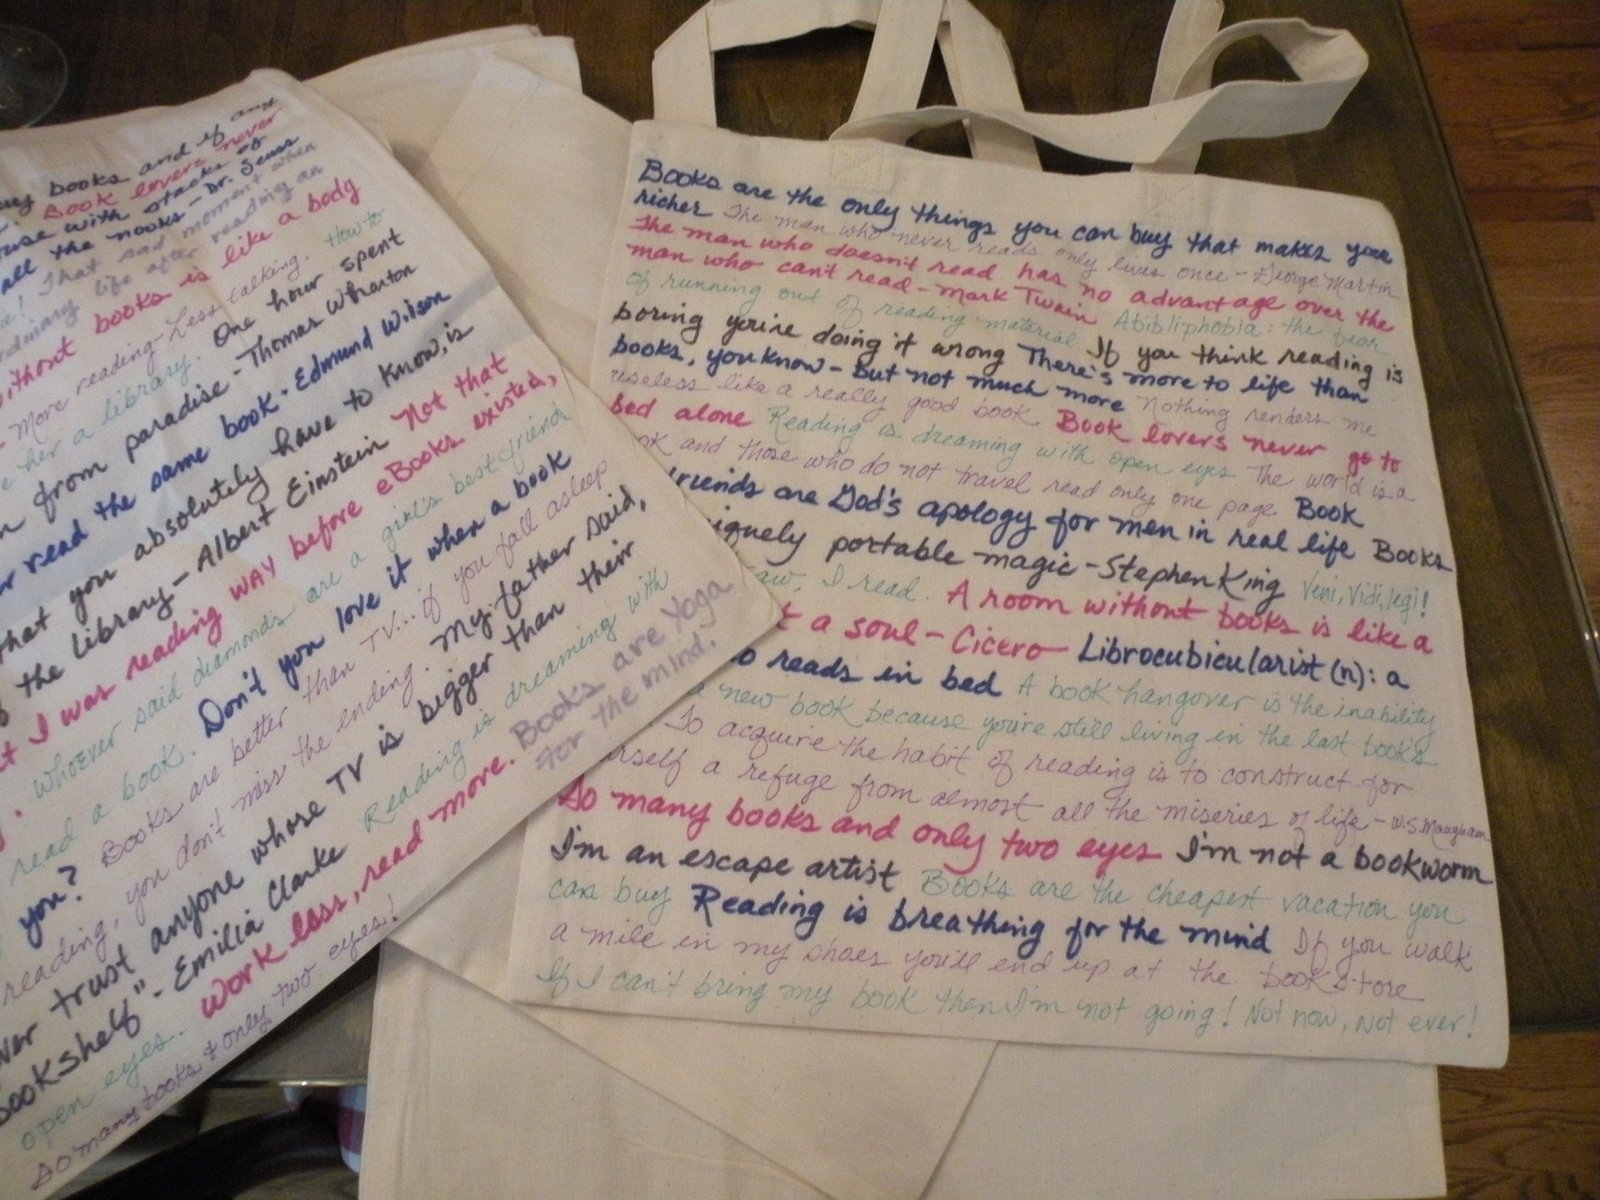 books and if any
Book lovers never
use with stacks of
all the nooks - Dr. Seuss
! That sad moment when
life after reading an
without books is like a body
More reading - Less talking. How to
her a library. One hour spent
from paradise - Thomas Wharton
read the same book - Edmund Wilson
that you absolutely have to know, is
the library - Albert Einstein Not that
I was reading way before eBooks existed,
. Whoever said diamonds are a girl's best friend
read a book. Don't you love it when a book
you? Books are better than TV... if you fall asleep
reading, you don't miss the ending. My father said,
trust anyone whose TV is bigger than their
bookshelf" - Emilia Clarke Reading is dreaming with
open eyes.. Work less, read more. Books are Yoga
for the mind.
So many books & only two eyes!
Books are the only things you can buy that makes you
richer The man who never reads only lives once - George Martin
The man who doesn't read has no advantage over the
man who can't read - Mark Twain Abibliphobia: the fear
of running out of reading material If you think reading is
boring you're doing it wrong There's more to life than
books, you know - But not much more Nothing renders me
useless like a really good book Book lovers never go to
bed alone Reading is dreaming with open eyes The world is a
and those who do not travel read only one page Book
friends are God's apology for men in real life Books
portable magic - Stephen King Veni, Vidi, legi!
I read. A room without books is like a
a soul - Cicero Librocubicularist (n): a
reads in bed A book hangover is the inability
new book because you're still living in the last book's
To acquire the habit of reading is to construct for
a refuge from almost all the miseries of life - W.S. Maugham
So many books and only two eyes I'm not a bookworm
I'm an escape artist Books are the cheapest vacation you
can buy Reading is breathing for the mind If you walk
a mile in my shoes you'll end up at the bookstore
If I can't bring my book then I'm not going! Not now, not ever!